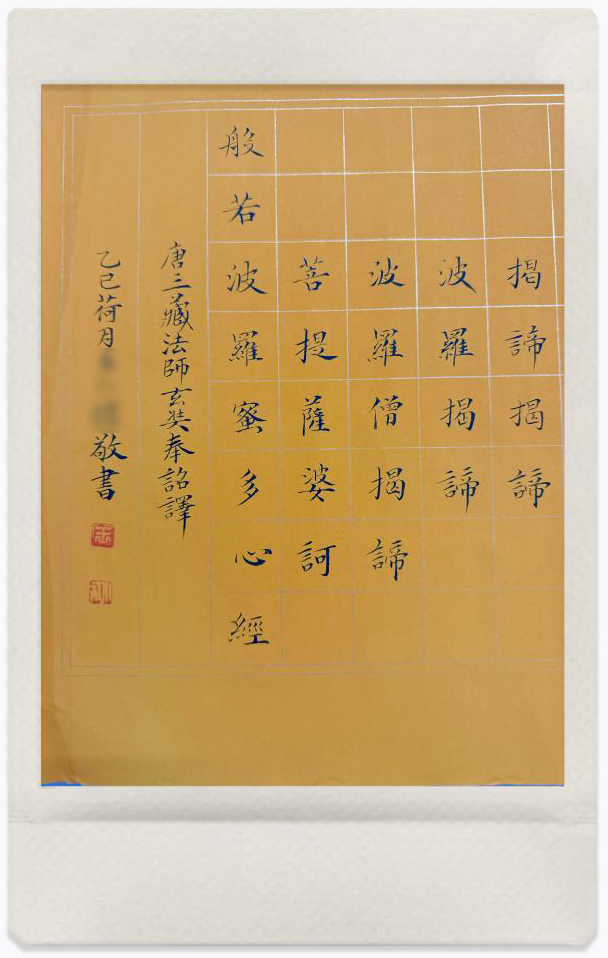 揭諦揭諦
波羅揭諦
波羅僧揭諦
菩提薩婆訶
般若波羅蜜多心經
唐三藏法師玄奘奉詔譯
乙巳荷月
敬書